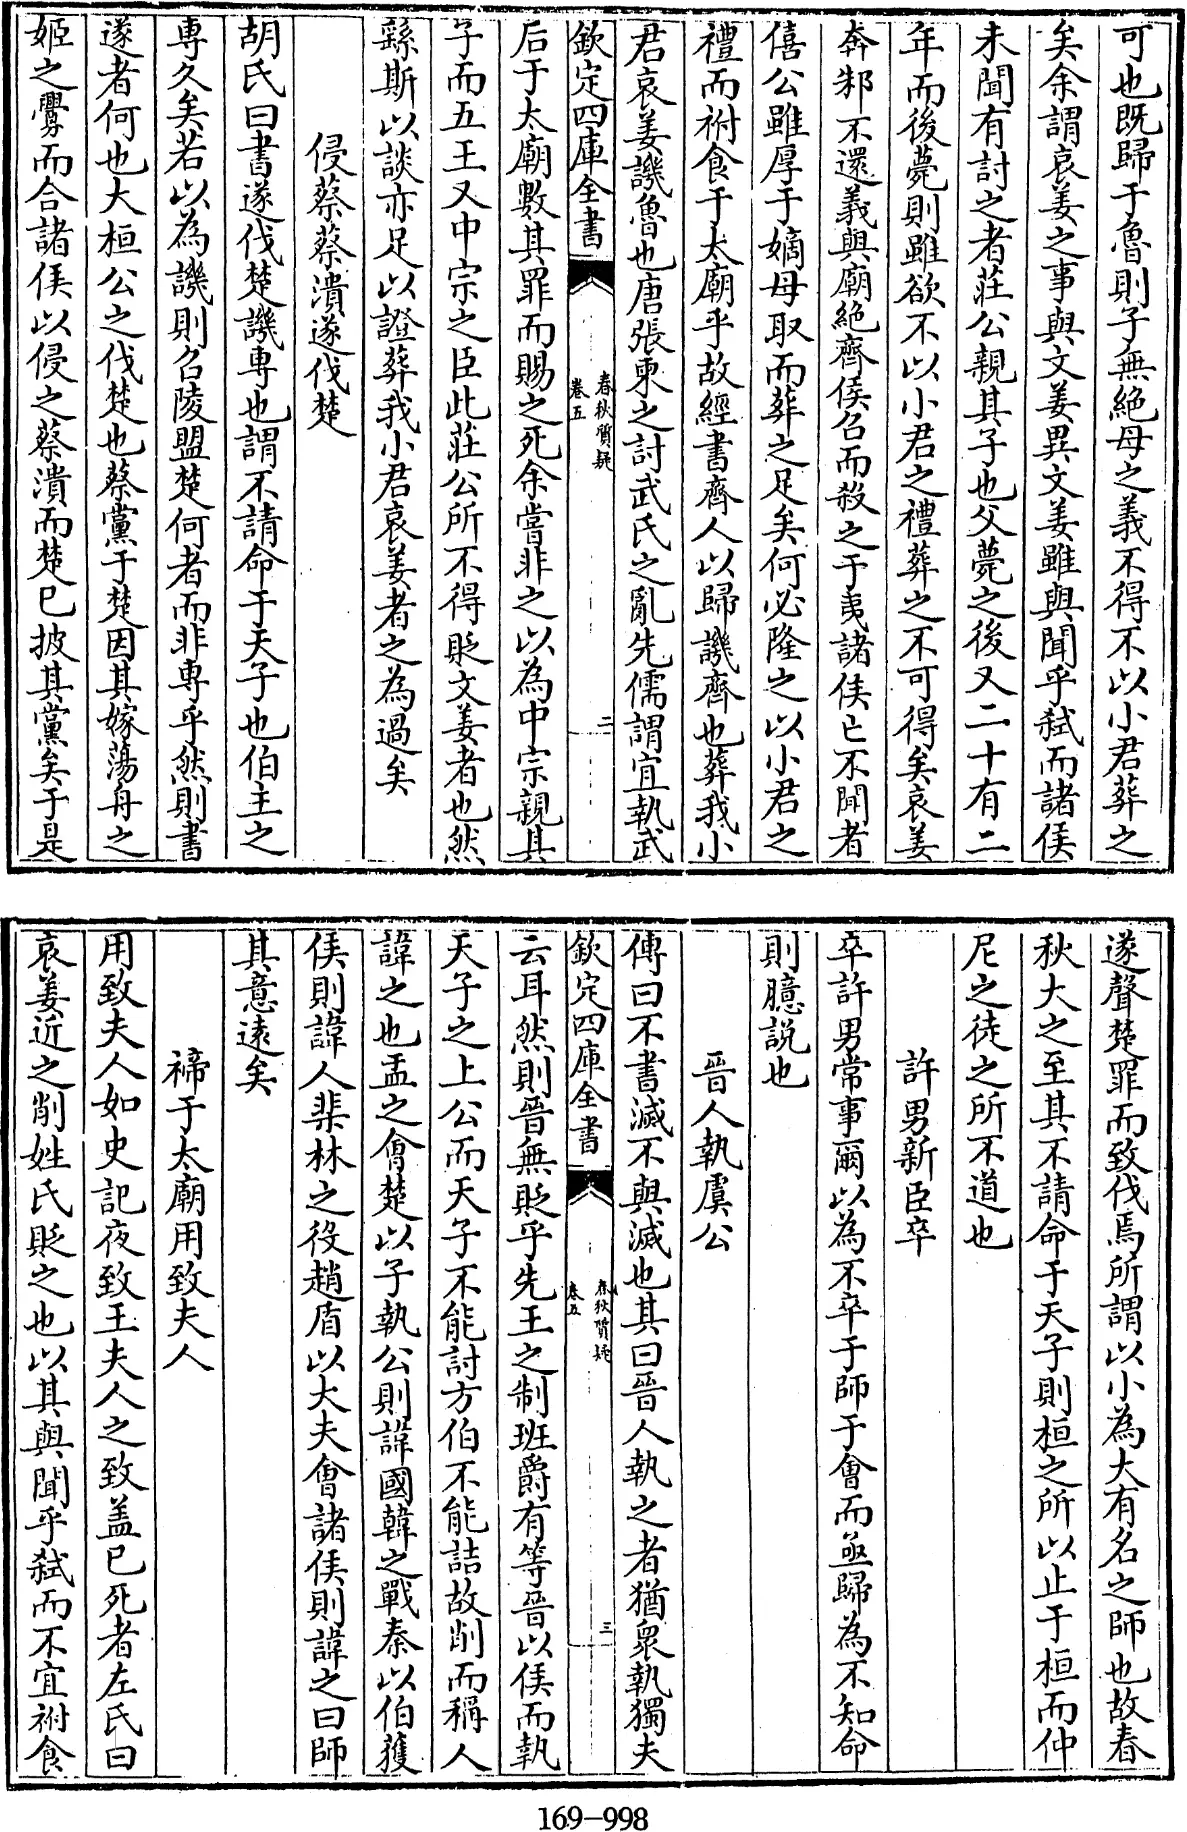 可也既歸于魯則子無絶母之義不得不以小君葬之
矣余謂哀姜之事與文姜異文姜雖與聞乎弑而諸侯
未聞有討之者莊公親其子也父薨之後又二十有二
年而後薨則雖欲不以小君之禮葬之不可得矣哀姜
奔邾不還義與廟絶齊侯召而殺之于夷諸侯亡不聞者
僖公雖厚于嫡母取而葬之足矣何必隆之以小君之
禮而祔食于太廟乎故經書齊人以歸譏齊也葬我小
君哀姜譏魯也唐張柬之討武氏之亂先儒謂宜執武
欽定四庫全書
春秋質疑
卷五
二
后于太廟數其罪而賜之死余嘗非之以為中宗親其
子而五王又中宗之臣此莊公所不得貶文姜者也然
繇斯以談亦足以證葬我小君哀姜者之為過矣
侵蔡蔡潰遂伐楚
胡氏曰書遂伐楚譏專也謂不請命于天子也伯主之
專久矣若以為譏則召陵盟楚何者而非專乎然則書
遂者何也大桓公之伐楚也蔡黨于楚因其嫁蕩舟之
姬之釁而合諸侯以侵之蔡潰而楚已披其黨矣于是
遂聲楚罪而致伐焉所謂以小為大有名之師也故春
秋大之至其不請命于天子則桓之所以止于桓而仲
尼之徒之所不道也
許男新臣卒
卒許男常事爾以為不卒于師于會而亟歸為不知命
則臆説也
晉人執虞公
傳曰不書滅不與滅也其曰晉人執之者猶衆執獨夫
欽定四庫全書
春秋質疑
卷五
三
云耳然則晉無貶乎先王之制班爵有等晉以侯而執
天子之上公而天子不能討方伯不能詰故削而稱人
諱之也盂之會楚以子執公則諱國韓之戰秦以伯獲
侯則諱人棐林之役趙盾以大夫會諸侯則諱之曰師
其意遠矣
禘于太廟用致夫人
用致夫人如史記夜致王夫人之致盖已死者左氏曰
哀姜近之削姓氏貶之也以其與聞乎弑而不宜祔食
169-998